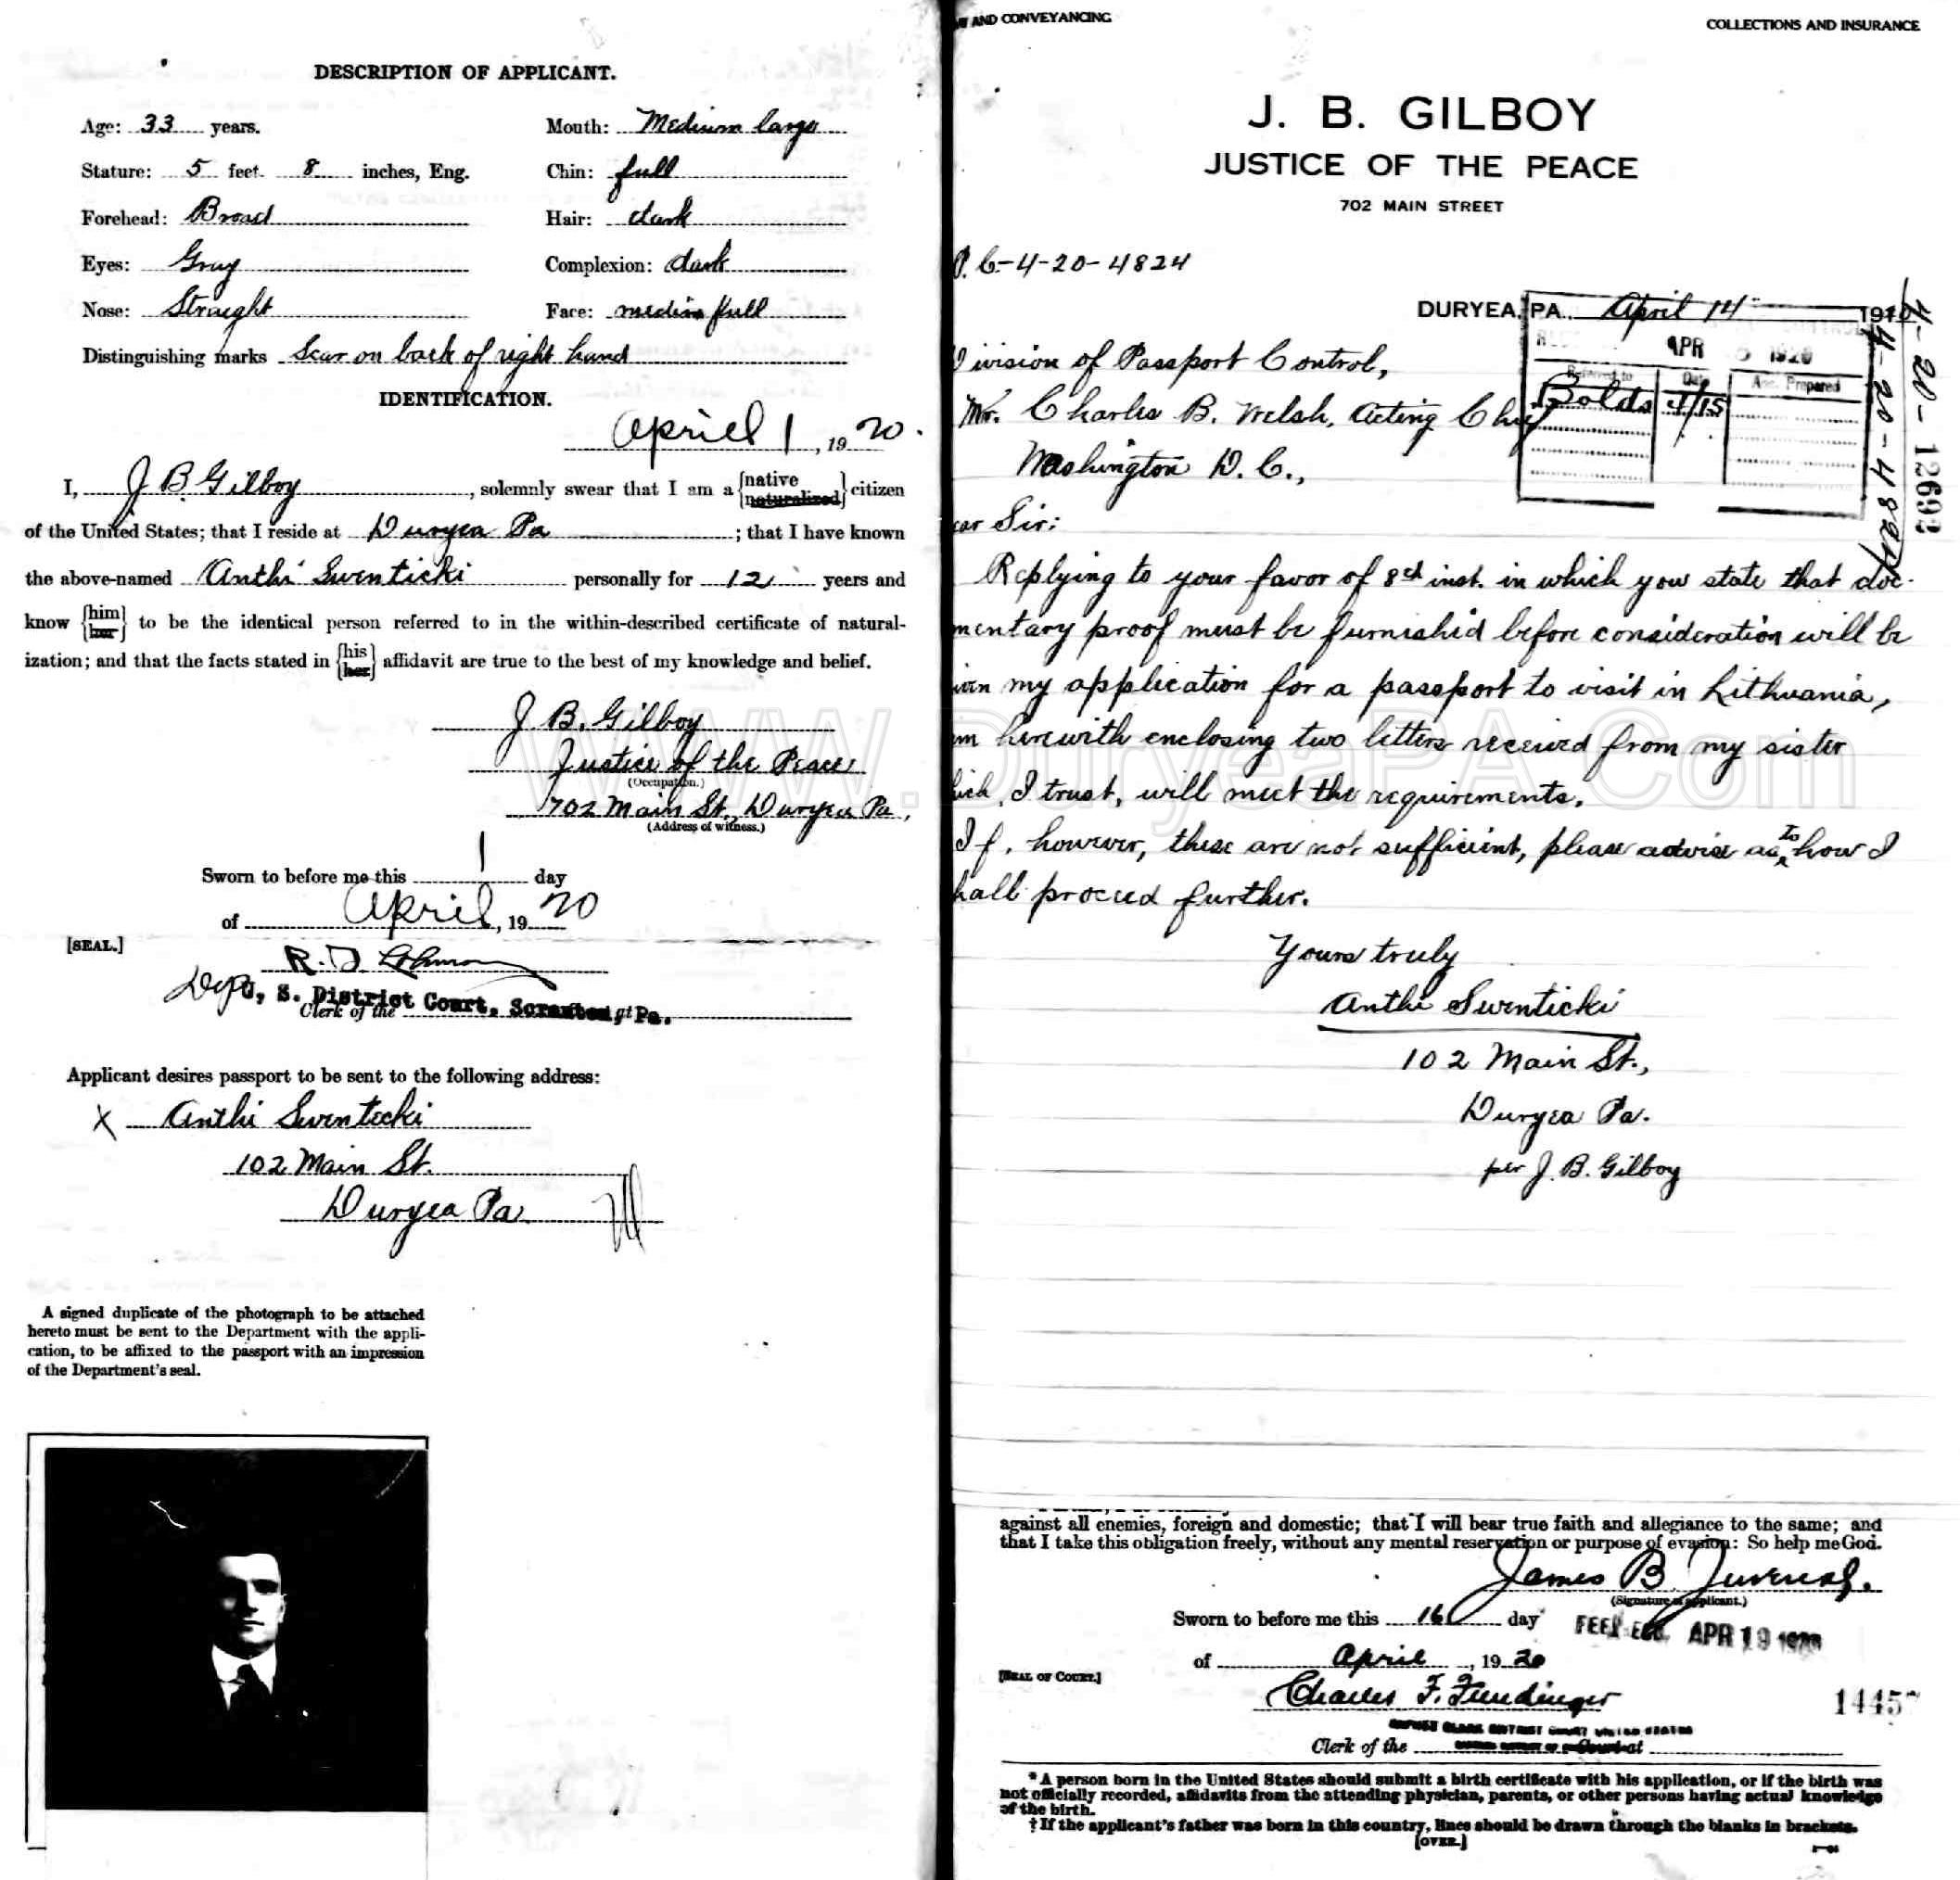 DESCRIPTION OF APPLICANT.
Age: 33 years.
Mouth: Medium large
Stature: 5 feet 8 inches, Eng.
Chin: full
Forehead: Broad
Hair: dark
Eyes: Gray
Complexion: dark
Nose: Straight
Face: medium full
Distinguishing marks Scar on back of right hand
IDENTIFICATION.
April 1, 1920.
I, J B Gilboy, solemnly swear that I am a {native naturalized} citizen
of the United States; that I reside at Duryea Pa; that I have known
the above-named Anthi Swenticki personally for 12 years and
know {him her} to be the identical person referred to in the within-described certificate of natural-
ization; and that the facts stated in {his her} affidavit are true to the best of my knowledge and belief.
J B. Gilboy
Justice of the Peace
(Occupation.)
702 Main St., Duryea Pa,
(Address of witness.)
Sworn to before me this 1 day
of April, 1920
[SEAL.]
R. J.
Dep U. S. District Court, Scranton, Pa.
Clerk of the at
Applicant desires passport to be sent to the following address:
X Anthi Swenticki
102 Main St.
Duryea Pa
A signed duplicate of the photograph to be attached
hereto must be sent to the Department with the appli-
cation, to be affixed to the passport with an impression
of the Department's seal.
AND CONVEYANCING
COLLECTIONS AND INSURANCE
J. B. GILBOY
JUSTICE OF THE PEACE
702 MAIN STREET
P. C-4-20-4824
DURYEA, PA., April 14 1920
APR 5 1920
Referred to Date Ans. Prepared
Bolds 4/15
4-20-12693
4-20-4824
Division of Passport Control,
Mr. Charles B. Welsh, Acting Chief
Washington D. C.,
ear Sir:
Replying to your favor of 8th inst. in which you state that doc-
mentary proof must be furnished before consideration will be
iven my application for a passport to visit in Lithuania,
am herewith enclosing two letters received from my sister
hich, I trust, will meet the requirements.
If, however, these are not sufficient, please advise as to how I
hall proceed further.
Yours truly
Anthi Swenticki
102 Main St.,
Duryea Pa.
per J. B. Gilboy
WWW.DuryeaPA.Com
against all enemies, foreign and domestic; that I will bear true faith and allegiance to the same; and
that I take this obligation freely, without any mental reservation or purpose of evasion: So help me God.
James B. Juvenal.
(Signature of applicant.)
Sworn to before me this 16 day
APR 19 1920
of April, 1920
[SEAL OF COURT.]
Charles F.
1445
Clerk of the Court at
*A person born in the United States should submit a birth certificate with his application, or if the birth was
not officially recorded, affidavits from the attending physician, parents, or other persons having actual knowledge
of the birth.
†If the applicant's father was born in this country, lines should be drawn through the blanks in brackets.
[OVER.]